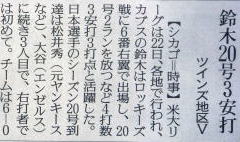 鈴木20号3安打
ツインズ地区V
【シカゴ時事】米大リ
ーグは22日、各地で行われ、
カブスの鈴木はロッキーズ
戦に6番右翼で出場し、20
号2ランを放つなど4打数
3安打3打点と活躍した。
日本選手のシーズン20号到
達は松井秀(元ヤンキース
など)、大谷(エンゼルス)
に続き3人目で、右打者で
は初めて。チームは6―0